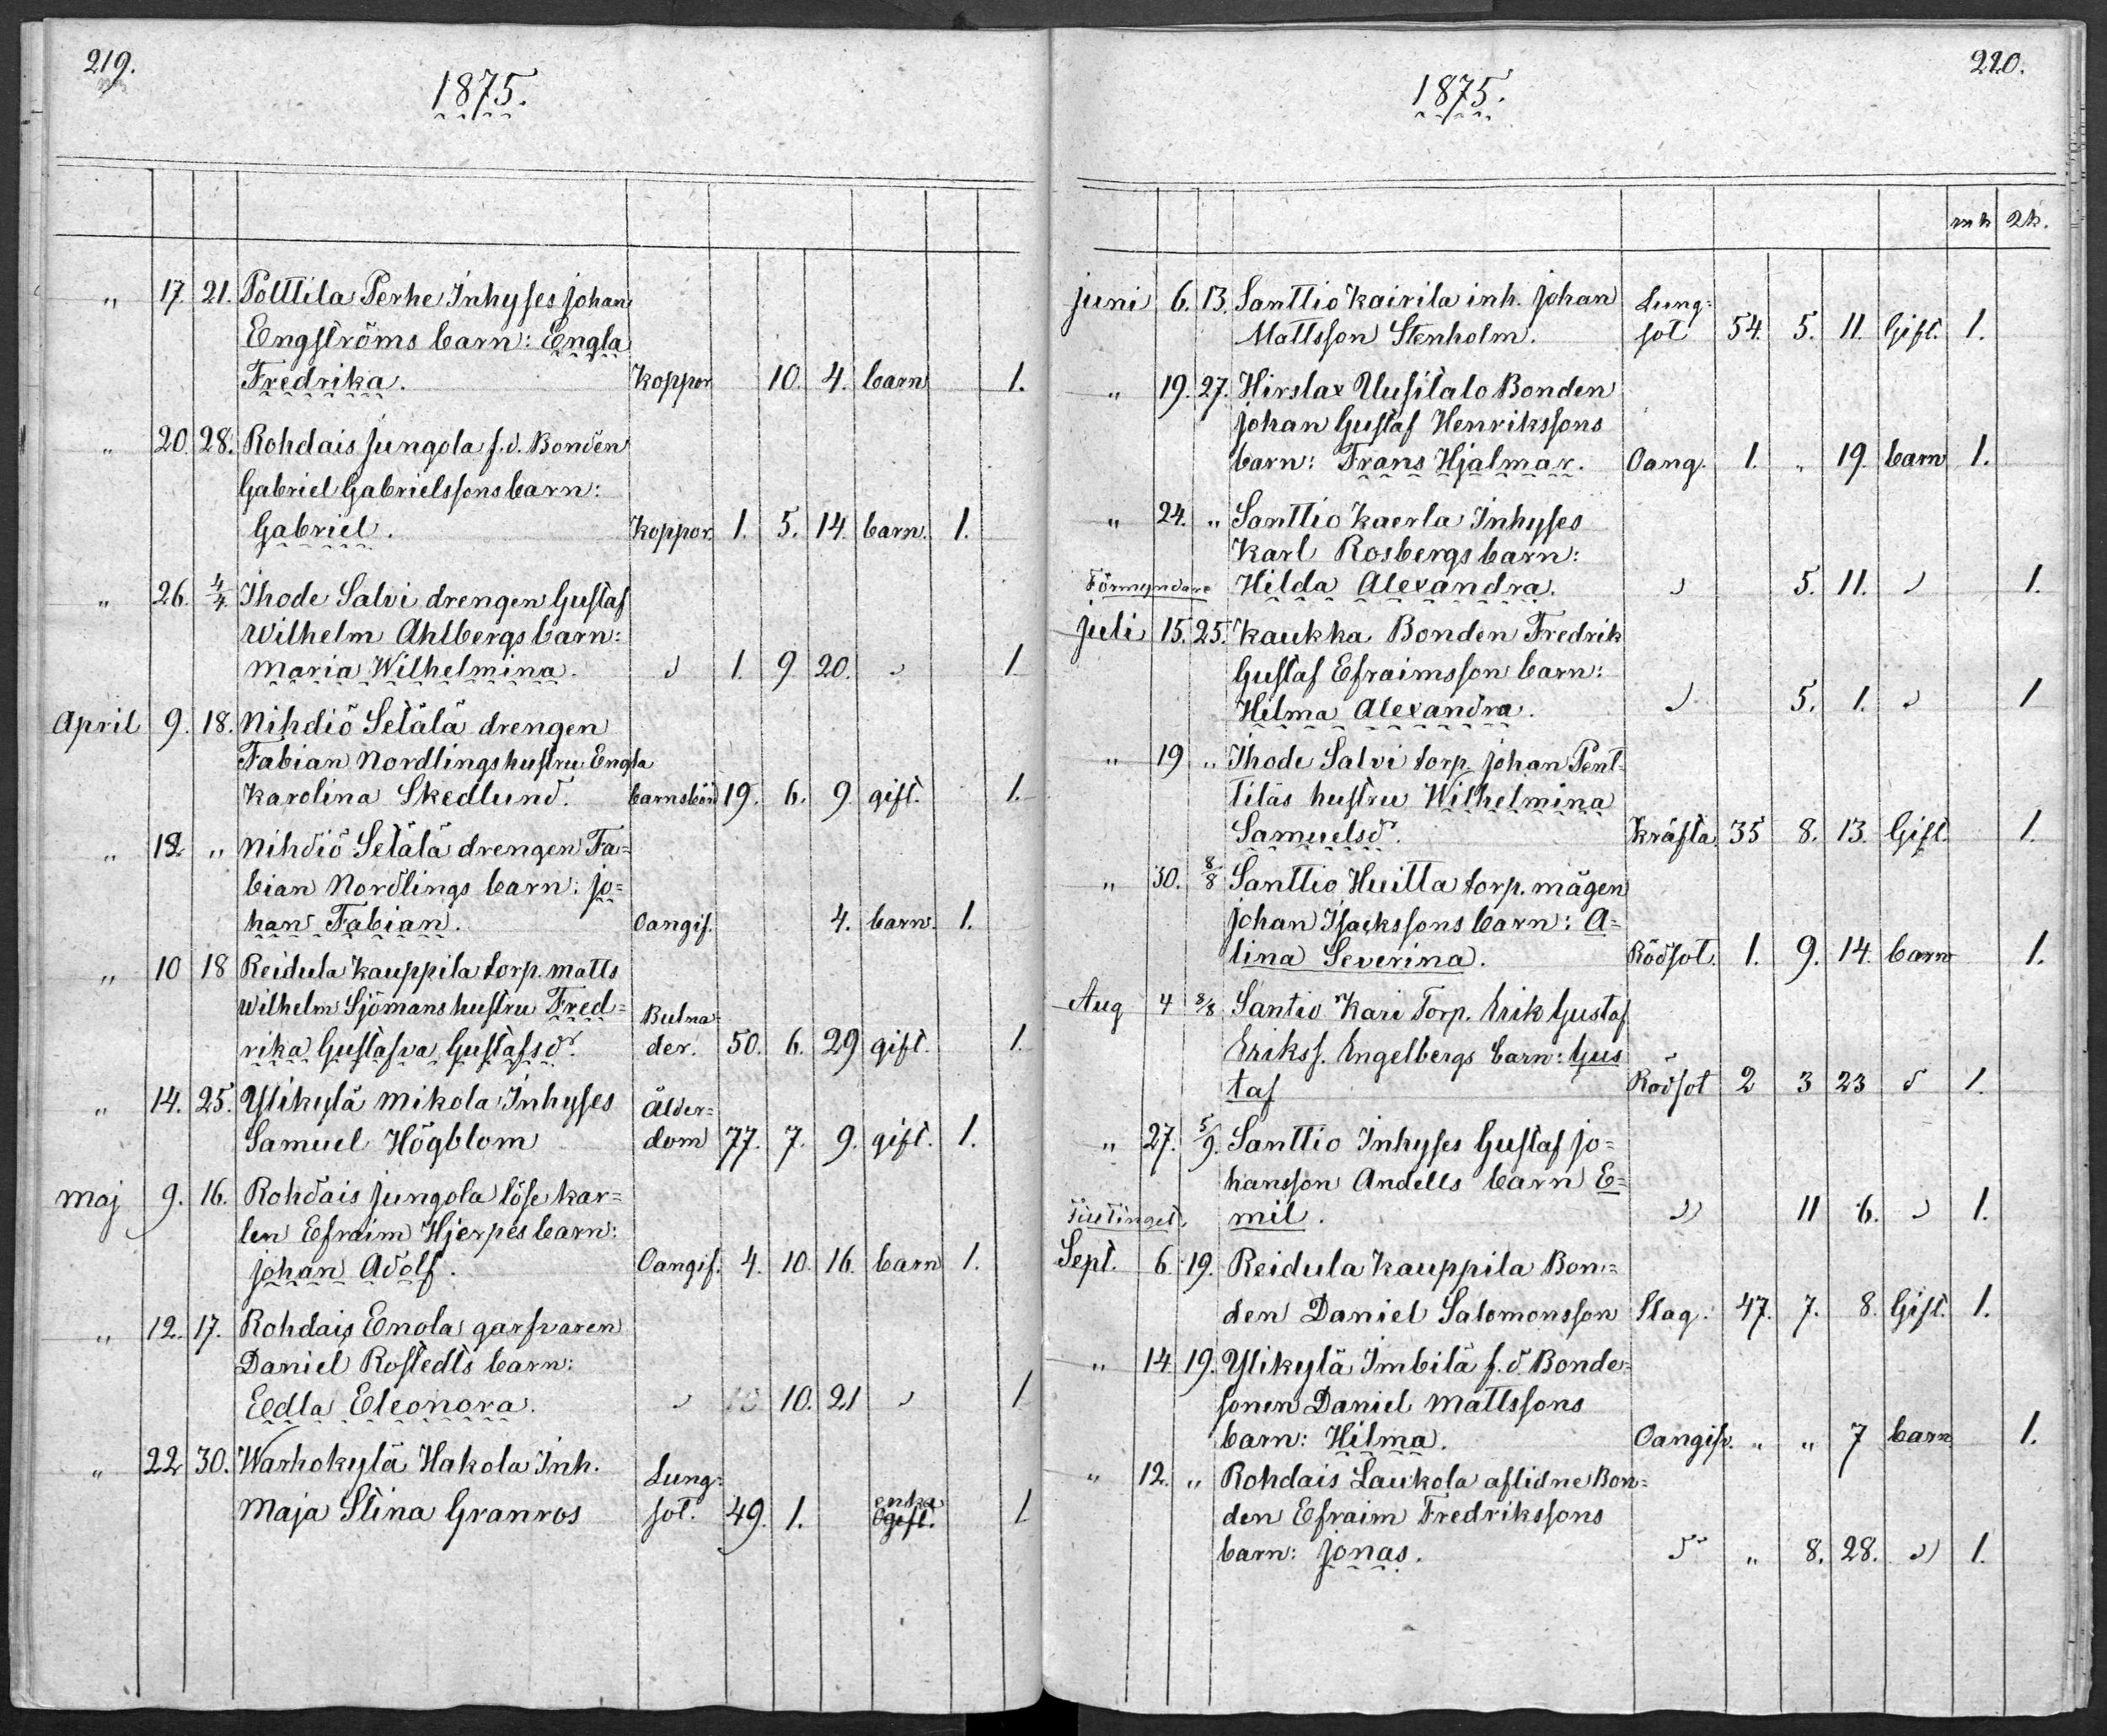 219.
1875.
" 17 21. Polttila Perhe Inhyses johan
Engströms barn: Engla
Fredrika. Koppor 10. 4. barn 1.
" 20. 28. Rohdais Jungola f.d. Bonden
Gabriel Gabrielssons barn:
Gabriel. Koppor. 1. 5. 14. barn. 1.
" 26. 4/4 Ihode Salvi drengen Gustaf
Wilhelm Ahlbergs barn:
Maria Wilhelmina. " 1. 9 20. " 1
April 9. 18. Nihdiö Setälä drengen
Fabian Nordlings hustru Engla
Karolina Skedlund. barnsbörd 19. 6. 9 gift. 1.
" 12 " Nihdiö Setälä drengen Fa=
bian Nordlings barn: jo=
han Fabian. Oangif. 4. barn. 1.
" 10 18 Reidula Kauppila torp. Matts
Wilhelm Sjömans hustru Fred=
rika Gustafva Gustafsdr. Bulna=
der. 50. 6. 29 gift. 1.
" 14. 25. Ylikylä Mikola Inhyses
Samuel Högblom Ålder=
dom 77. 7. 9. gift. 1.
Maj 9. 16. Rohdais Jungola löse kar=
len Efraim Hjerpes barn:
johan Adolf. Oangif. 4. 10. 16. barn 1.
" 12. 17. Rohdais Enola garfvaren
Daniel Rostedts barn:
Edla Eleonora. " 10. 21 " 1
" 22 30. Warhokylä Hakola Inh.
Maja Stina Granros Lung=
sot. 49. 1. enka
Ogift. 1
220.
1875.
mk 2k.
juni 6. 13. Santtio Kairila inh. johan
Mattsson Stenholm. Lung=
sot 54. 5. 11. Gift. 1.
" 19. 27. Hirslax Uusitalo Bonden
johan Gustaf Henrikssons
barn: Frans Hjalmar. Oang. 1. " 19. barn 1.
" 24. " Santtio Kaerla Inhyses
Karl Rosbergs barn:
Förmyndare Hilda Alexandra. " 5. 11. " 1.
juli 15. 25. Kaukka Bonden Fredrik
Gustaf Efraimsson barn:
Hilma Alexandra. " 5. 1. " 1
" 19 " Ihode Salvi torp. johan Pent=
tiläs hustru Wilhelmina
Samuelsdr. Kräfta 35 8. 13. Gift. 1.
" 30. 8/8 Santtio Huitta torp. mågen
johan Isackssons barn: A=
lina Severina. Rödsot. 1. 9. 14. barn 1.
Aug 4 8/8 Santio Kari Torp. Erik Gustaf
Erikss. Engelbergs barn: Gus
taf Rödsot 2 3 23 " 1.
" 27. 5/9. Santtio Inhyses Gustaf jo=
hansson Andells barn E=
mil. " 11 6. " 1.
Sept. 6. 19. Reidula Kauppila Bon=
den Daniel Salomonsson Slag. 47. 7. 8. Gift. 1.
" 14. 19. Ylikylä Imbilä f.d. Bonde=
sonen Daniel Mattssons
barn: Hilma. Oangifv. " " 7 barn 1.
" 12. " Rohdais Laukola aflidne Bon=
den Efraim Fredrikssons
barn: jonas. " " 8. 28. " 1.